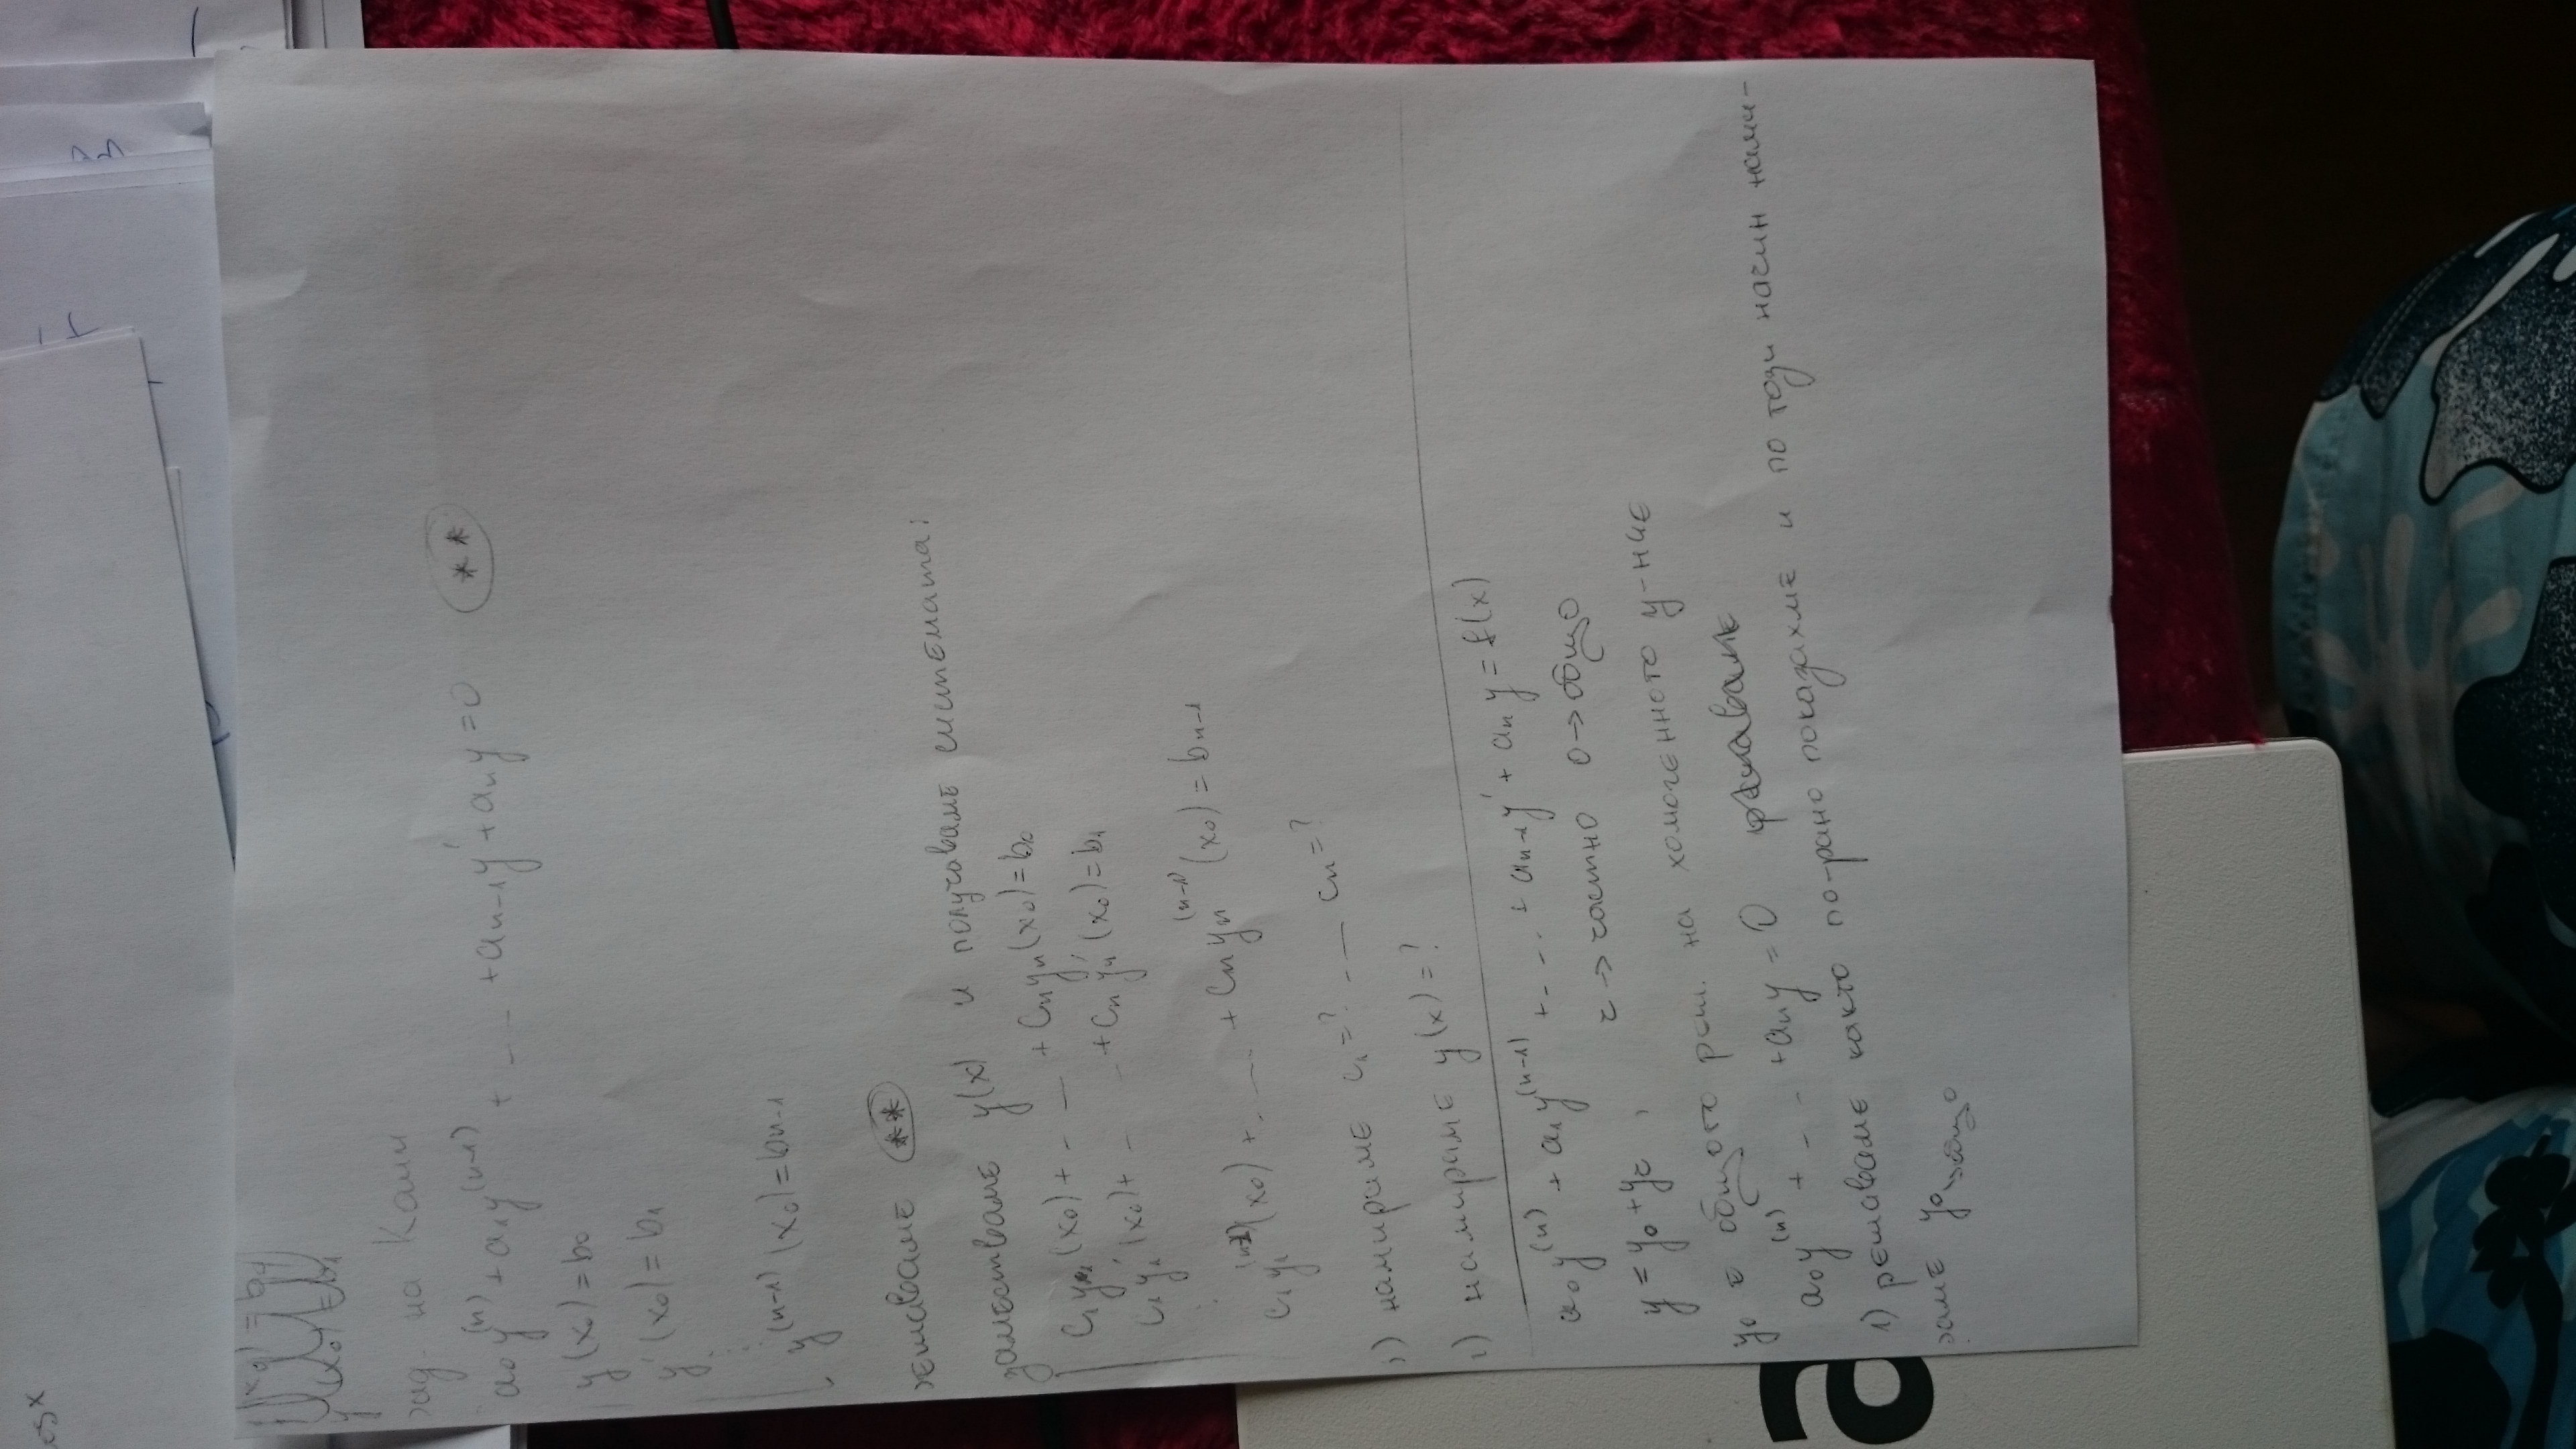 зад. на Коши
a₀y⁽ⁿ⁾ + a₁y⁽ⁿ⁻¹⁾ + - - - + aₙ₋₁y' + aₙy = 0 (**)
y(x₀) = b₀
y'(x₀) = b₁
⋮
y⁽ⁿ⁻¹⁾(x₀) = bₙ₋₁
решаваме (**)
заместваме y(x) и получаваме системата:
c₁y₁(x₀) + - — + cₙyₙ(x₀) = b₀
c₁y₁'(x₀) + - — - + cₙyₙ'(x₀) = b₁
⋮
c₁y₁⁽ⁿ⁻¹⁾(x₀) + - — + cₙyₙ⁽ⁿ⁻¹⁾(x₀) = bₙ₋₁
1) намираме c₁ = ? - — cₙ = ?
2) намираме y(x) = ?
a₀y⁽ⁿ⁾ + a₁y⁽ⁿ⁻¹⁾ + - - - + aₙ₋₁y' + aₙy = f(x)
y = y₀ + yч, ч → частно о → общо
y₀ е общото реш. на хомогенното у-ние
a₀y⁽ⁿ⁾ + - - - + aₙy = 0
1) решаваме както по-рано показахме и по този начин нами-
раме y₀ → общо
cosx
a